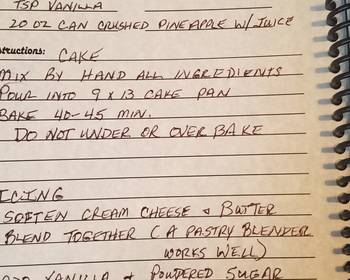 TSP VANILLA
20 OZ CAN CRUSHED PINEAPPLE W/ JUICE
structions: CAKE
MIX BY HAND ALL INGREDIENTS
POUR INTO 9 X 13 CAKE PAN
BAKE 40-45 MIN.
DO NOT UNDER OR OVER BAKE
ICING
SOFTEN CREAM CHEESE & BUTTER
BLEND TOGETHER (A PASTRY BLENDER
WORKS WELL)
VANILLA & POWDERED SUGAR